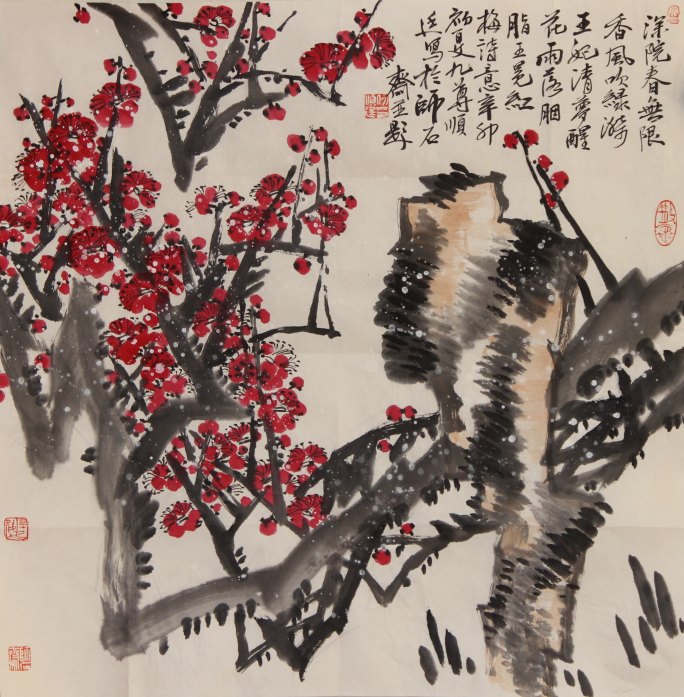 深院春無限
香風吹綠漪
玉妃清夢醒
花雨落胭
脂王冕紅
梅詩意辛卯
初夏九尊順
寫於師石
齋並題